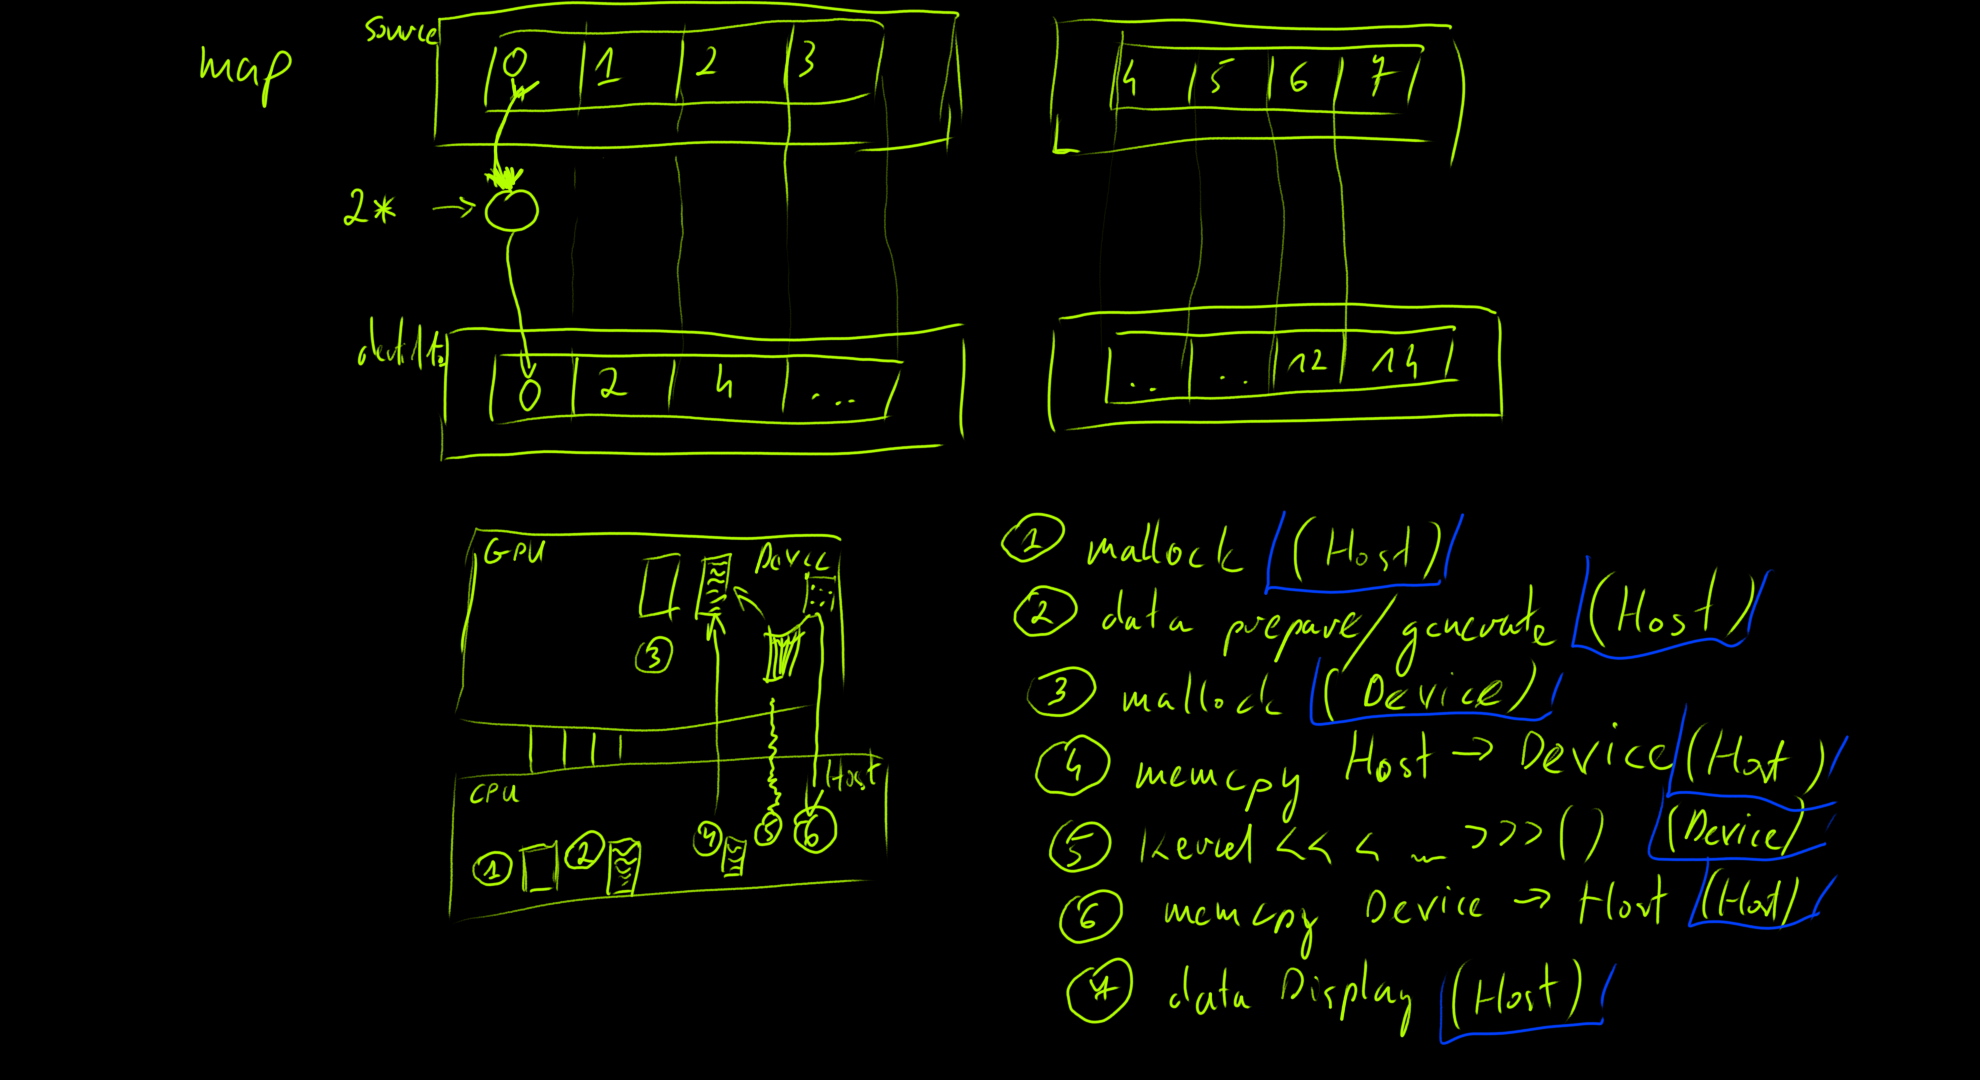 source
map
0 1 2 3
4 5 6 7
2* →
0 2 4 ...
.. .. 12 14
GPU
Device
3
CPU
Host
1 2 4 5 6
1 mallock (Host)
2 data prepare/generate (Host)
3 mallock (Device)
4 memcpy Host → Device (Host)
5 kernel <<< _ >>>() (Device)
6 memcpy Device → Host (Host)
7 data Display (Host)